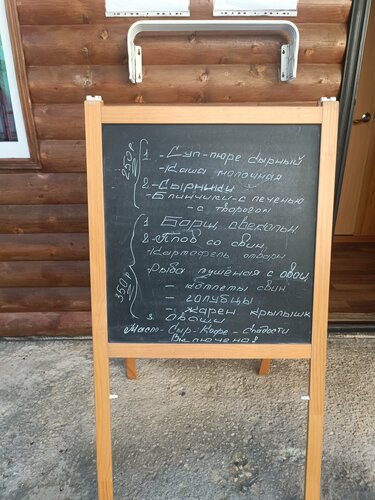 250р
1. - Суп-пюре сырный
- Каша молочная
2. - Сырники
- Блинчики - с печенью
- с творогом
350р
1. Борщ свекольн.
2. - Плов со свин,
- Картофель отварн
- Рыба тушёная с овощ
- котлеты свин
- голубцы
- жарен крылышк
3. Овощи
Масло - Сыр - Кофе - Сладости
Включена